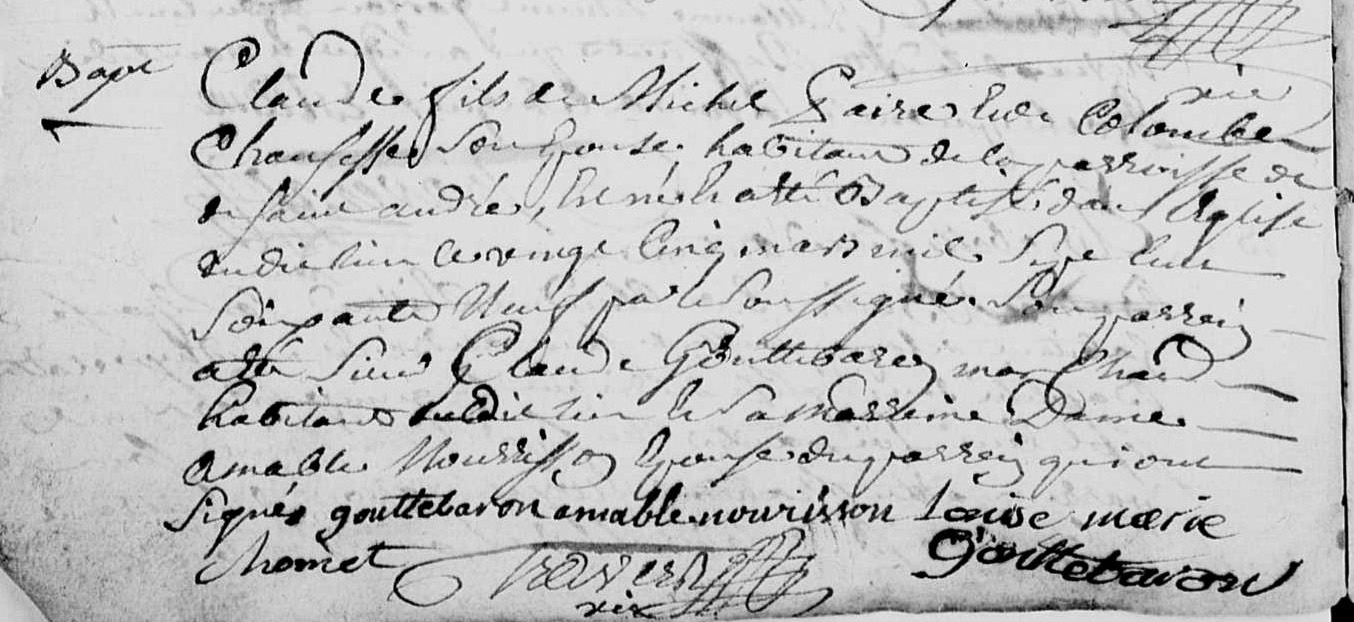 Bapt
Claude fils de Michel Faire et de Colombe
Chausesse son Epouse habitant de la parroisse de
de saint andré, est né et a été Baptisé dans l'Eglise
dudit lieu ce vingt cinq mars mil sept cent
soixante neuf par le soussigné son parrein
a été sieur Claude Gouttebaron marchand
habitant dudit lieu et sa marreine Dame
amable Nourrisson Epouse du parrein qui ont
signés gouttebaron amable nourisson Louise marie
chomet Gouttebaron